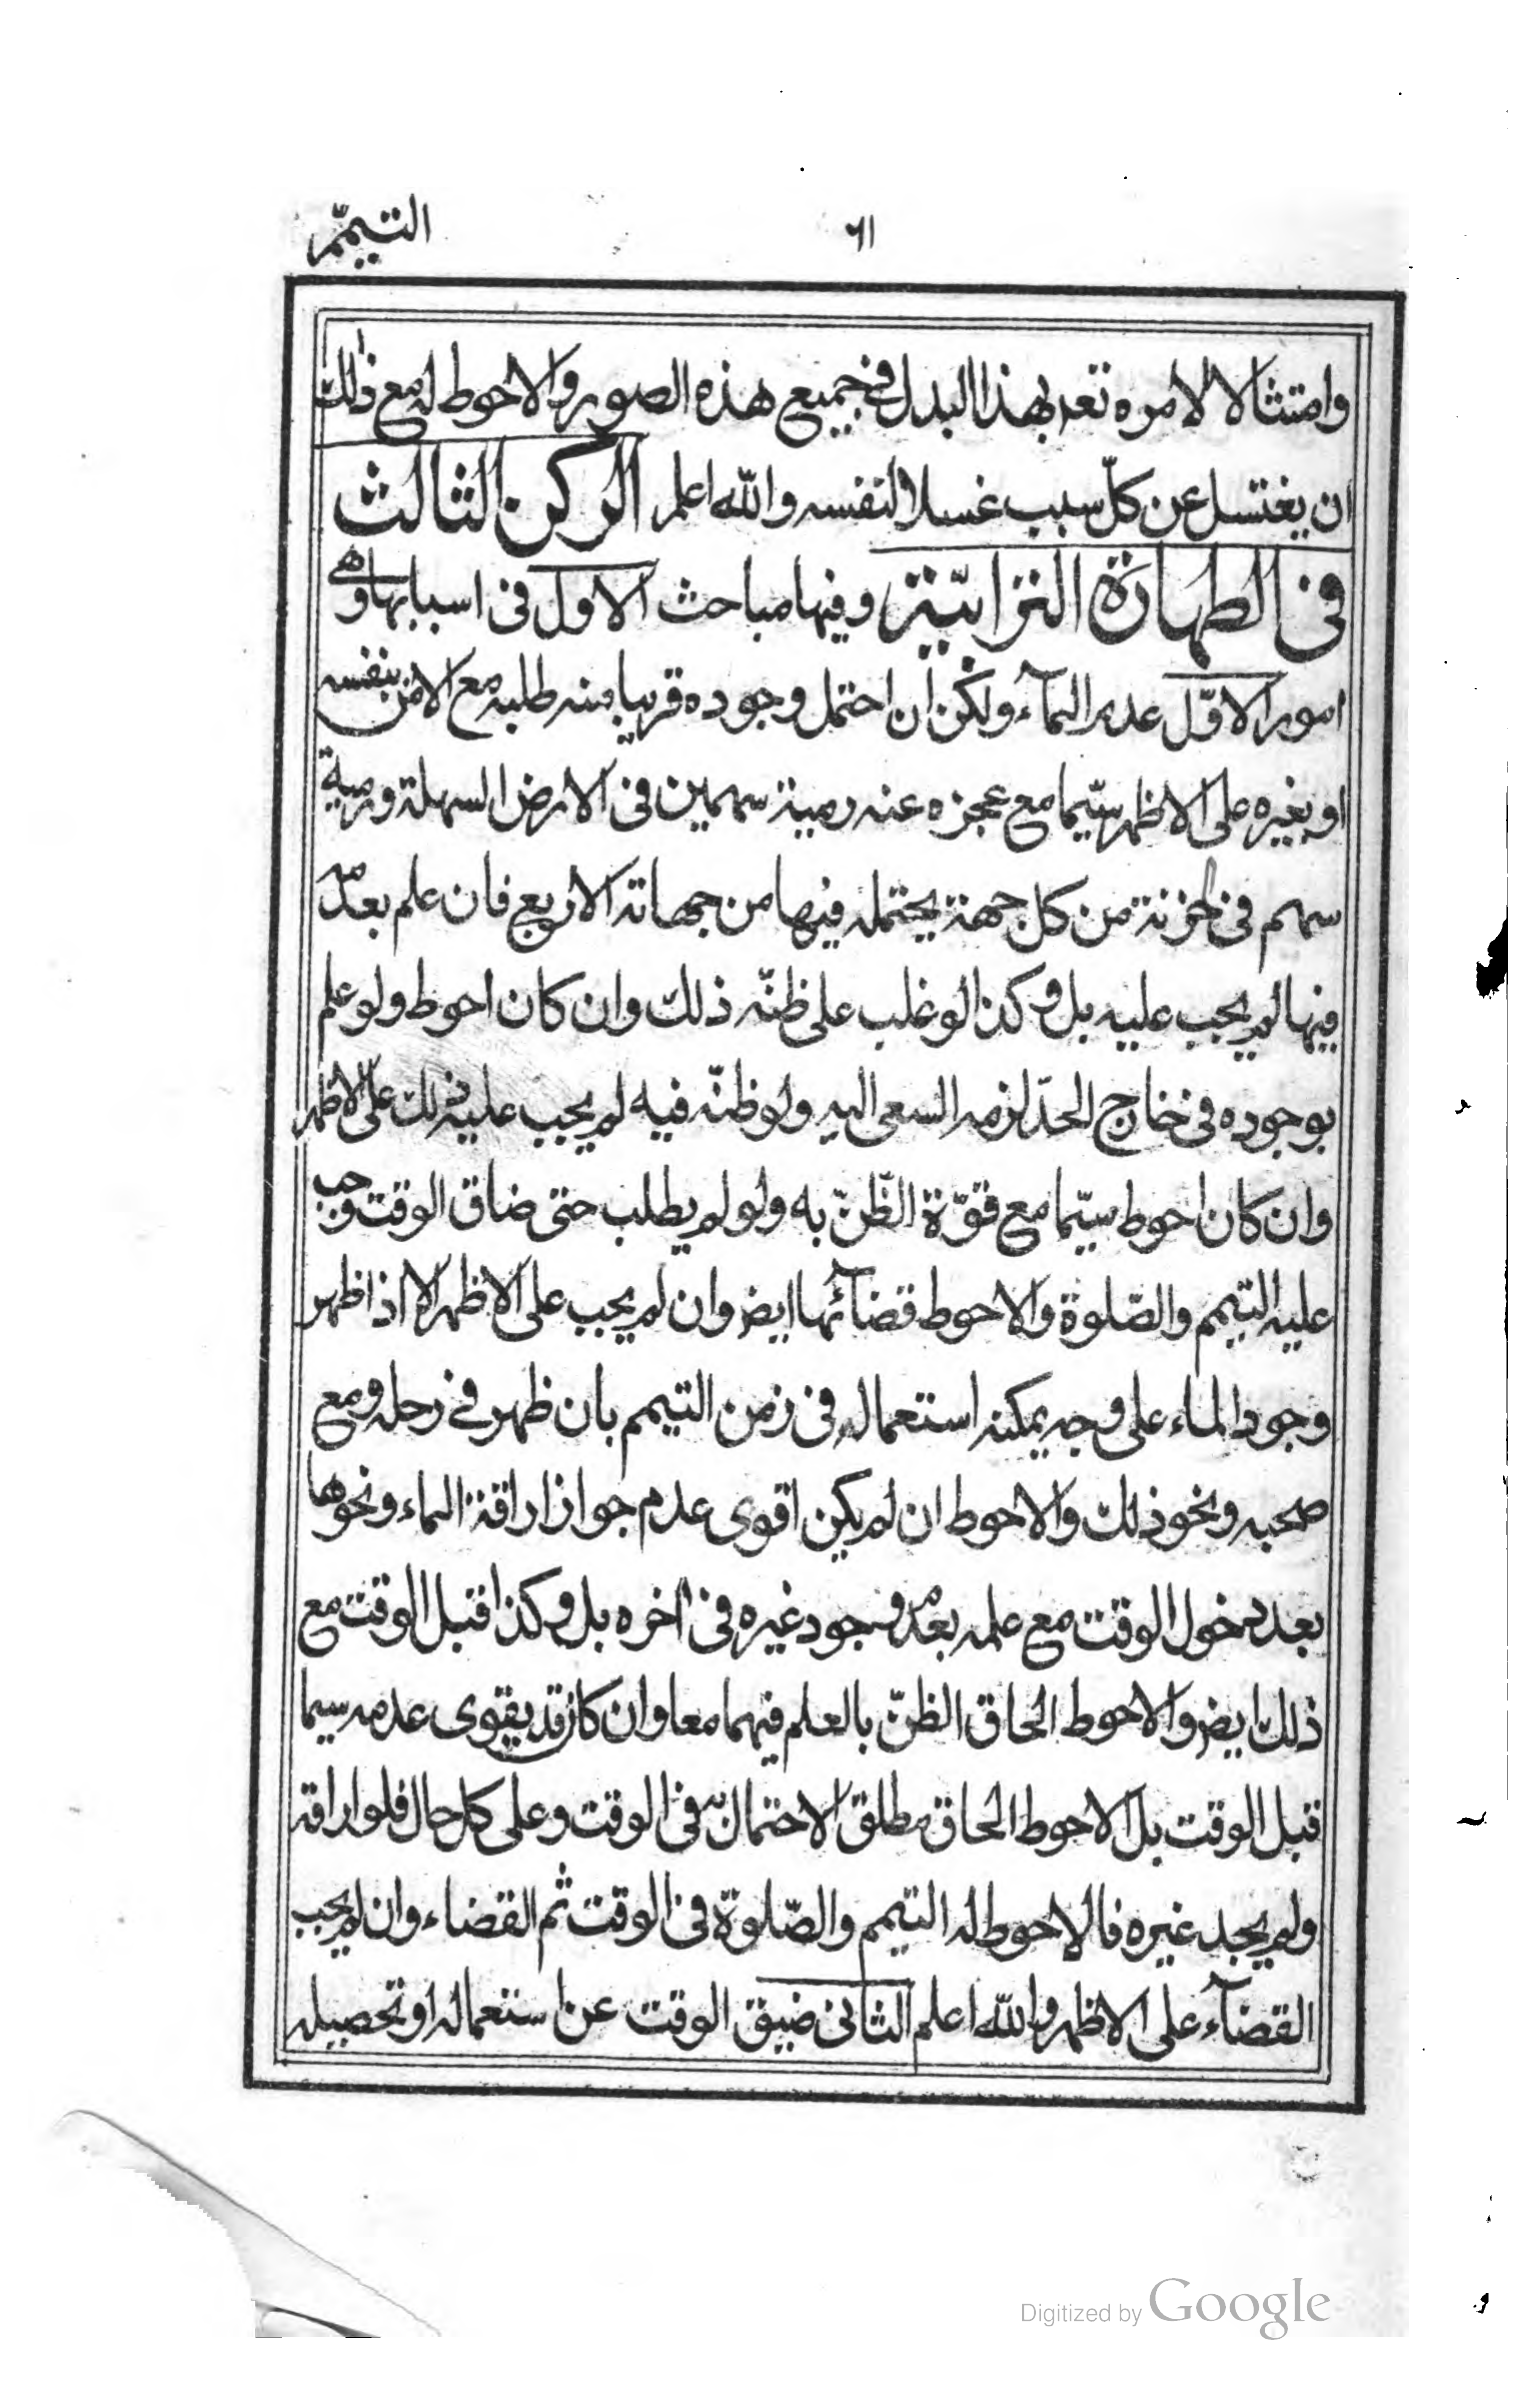 التيمّم
٦١
وامتثالا لامره تعم بهذا البدل فى جميع هذه الصور والاحوط له مع ذلك
ان يغتسل عن كلّ سبب غسلا لنفسه والله اعلم الركن الثالث
فى الطهارة الترابيّة وفيها مباحث الاول فى اسبابها وهى
امور الاوّل عدم المآء ولكن ان احتمل وجوده قريبا منه طلبه مع الامن بنفسه
او بغيره على الاظهر سيّما مع عجزه عنه رمية سهمين فى الارض السهلة ورمية
سهم فى الحزنة من كل جهة يحتمله فيها من جهاته الاربع فان علم بعدمه
فيها لم يجب عليه بل وكذا لو غلب على ظنّه ذلك وان كان احوط ولو علم
بوجوده فى خارج الحدّ لزمه السعى اليه ولو ظنّه فيه لم يجب عليه ذلك على الاظهر
وان كان احوط سيّما مع قوّة الظّنّ به ولو لم يطلب حتى ضاق الوقت وجب
عليه التيمم والصّلوة والاحوط قضآئها ايضر وان لم يجب على الاظهر الا اذا ظهر
وجود الماء على وجه يمكنه استعماله فى زمن التيمم بان ظهر فى رحله ومع
صحبه ونحو ذلك والاحوط ان لم يكن اقوى عدم جواز اراقة الماء ونحوها
بعد دخول الوقت مع علمه بعدم وجود غيره فى اخره بل وكذا قبل الوقت مع
ذلك ايضر والاحوط الحاق الظنّ بالعلم فيهما معا وان كان قد يقوى عدمه سيما
قبل الوقت بل الاحوط الحاق مطلق الاحتمال به فى الوقت وعلى كل حال فلو اراقه
ولم يجد غيره فالاحوط له التيمم والصّلوة فى الوقت ثم القضاء وان لم يجب
القضآء على الاظهر والله اعلم الثانى ضيق الوقت عن استعماله او تحصيله
Digitized by Google